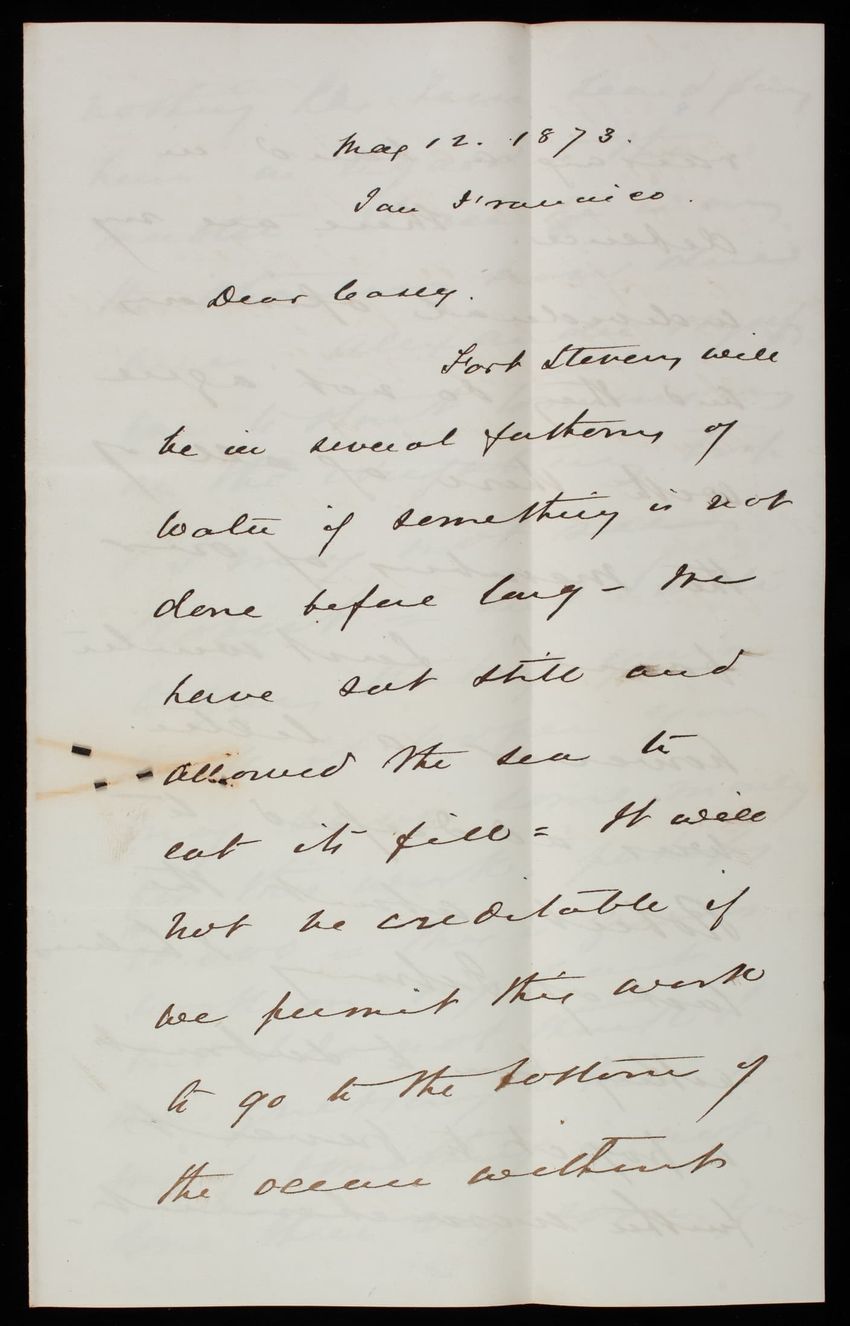 May 12. 1873.
San Francisco.
Dear Casey.
Fort Stevens will
be in several fathoms of
water if something is not
done before long - We
have sat still and
allowed the sea to
eat its fill = It will
not be creditable if
we permit this work
to go to the bottom of
the ocean without